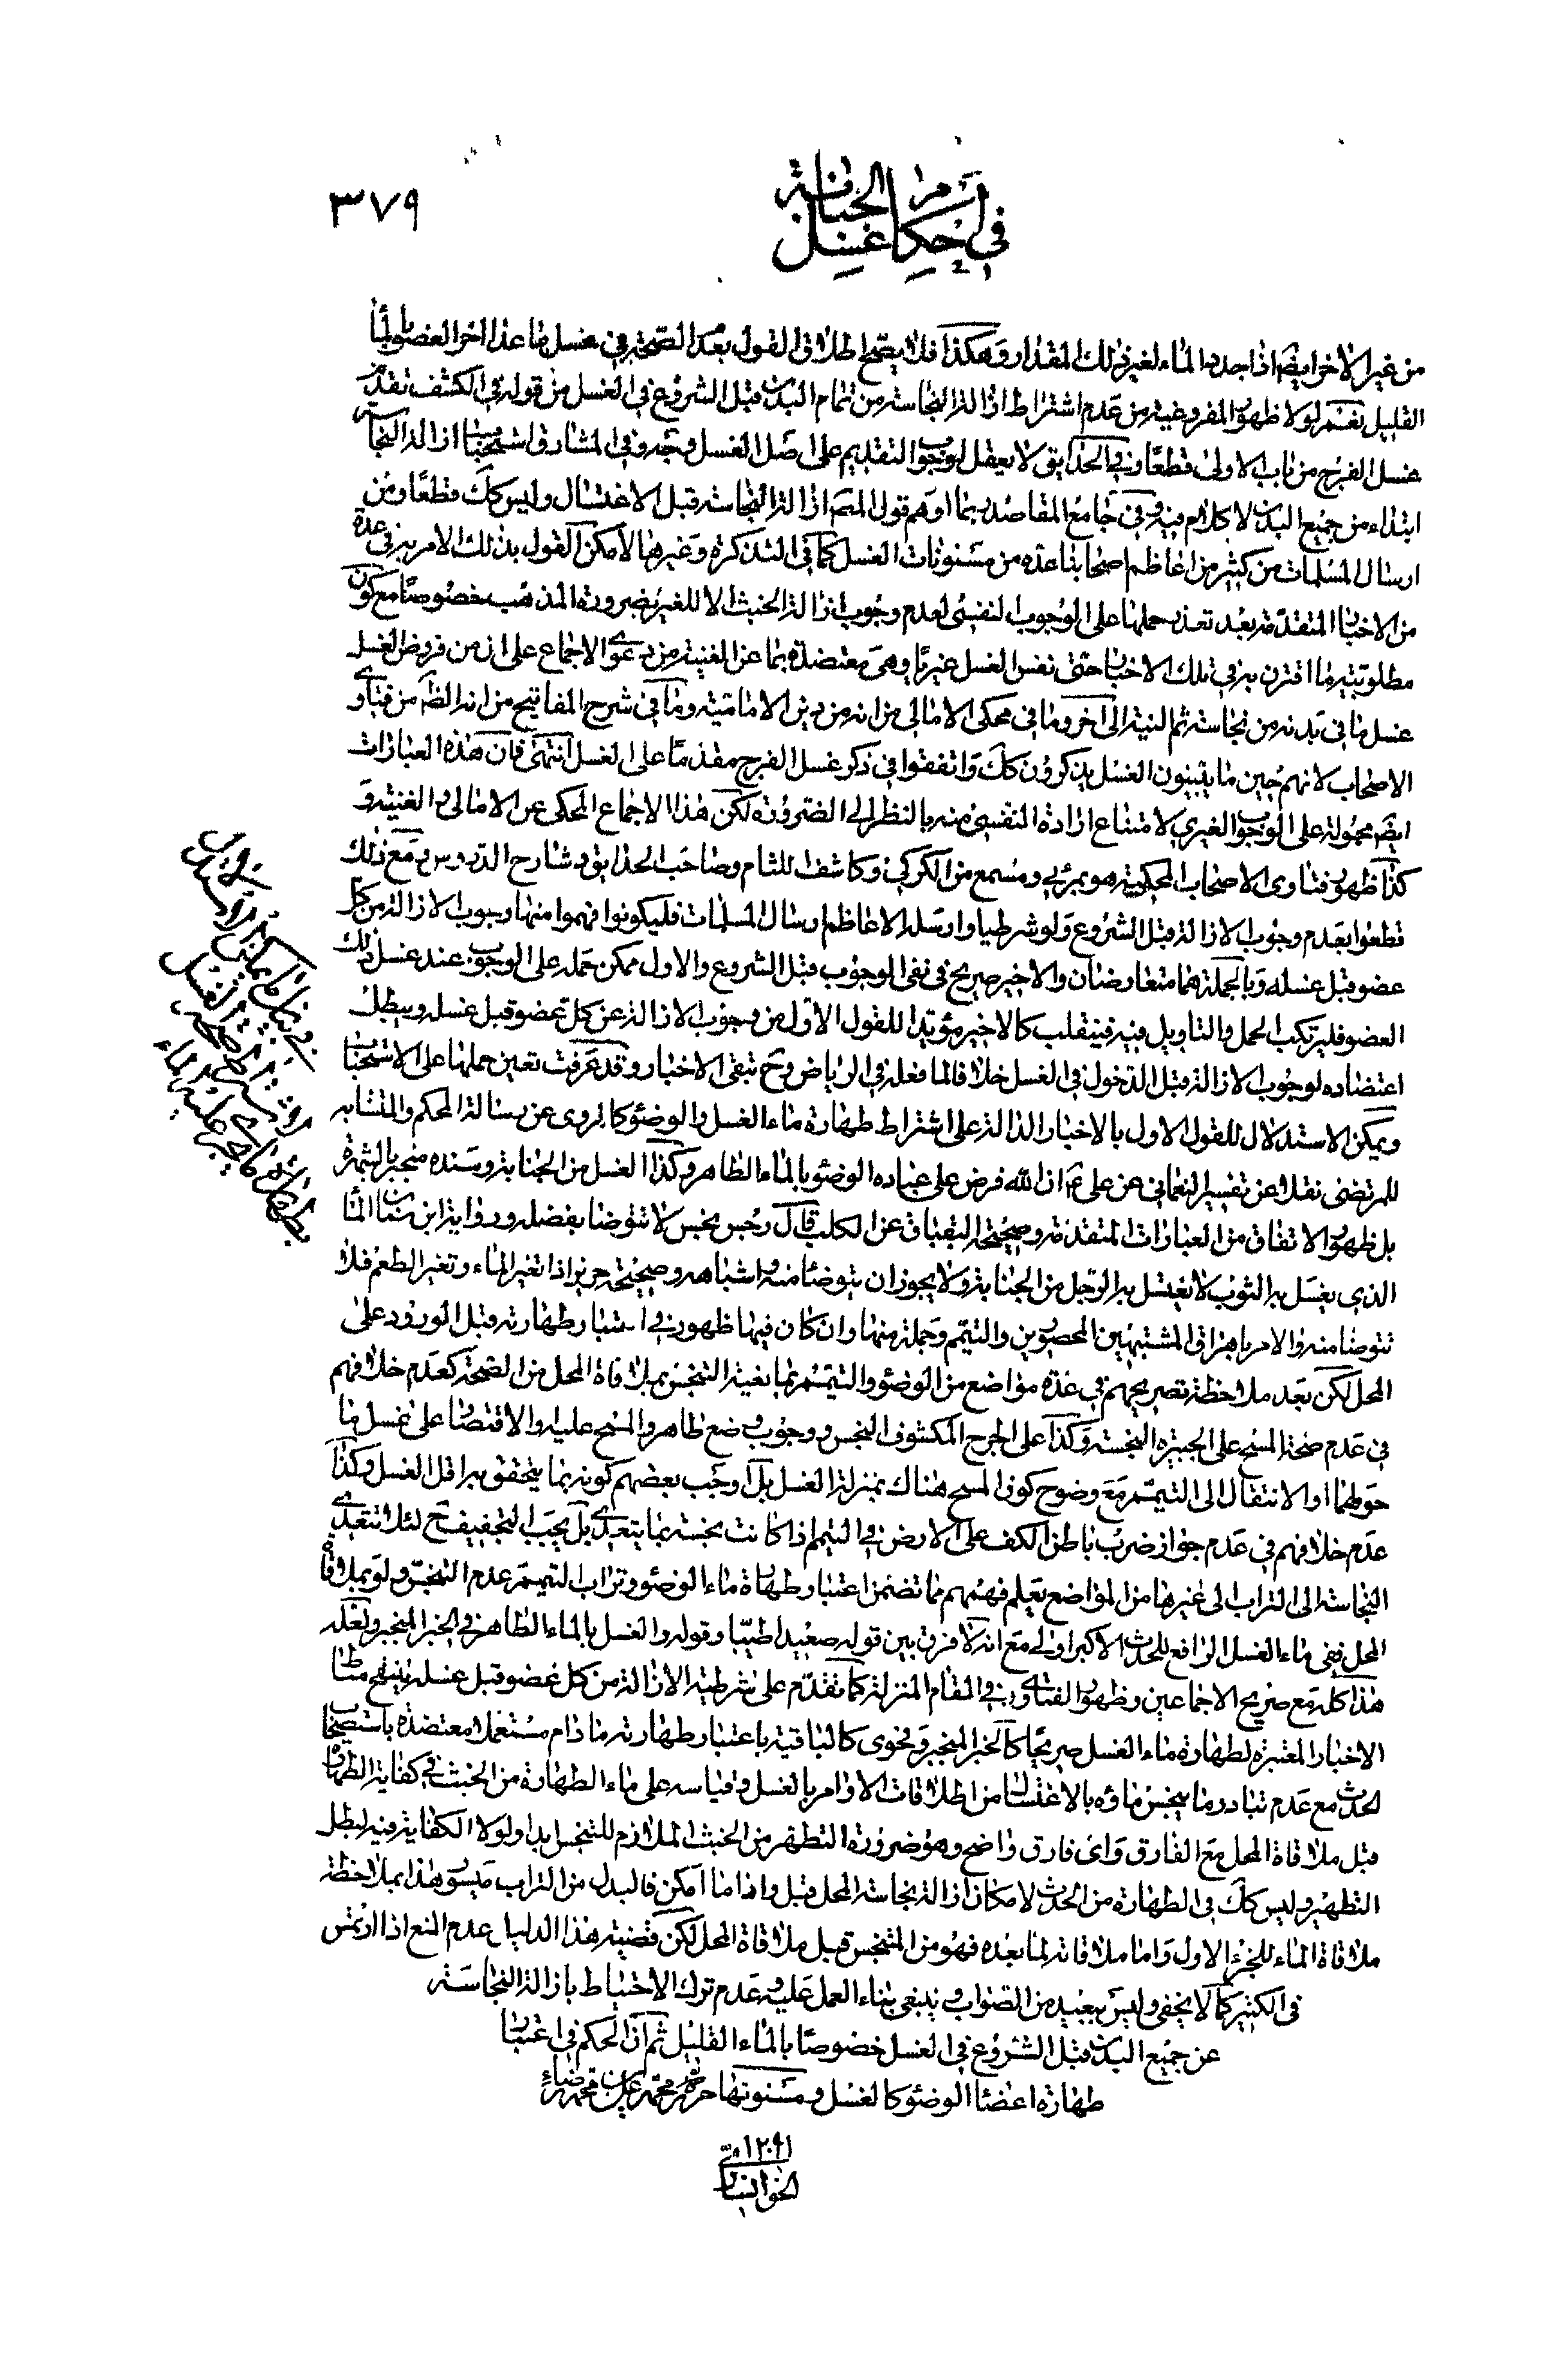 في أحكام غسل الجنابة
٣٧٩
من غير الاخر ايضا اذا جدد الماء لغير ذلك المقدار وهكذا فلا يصح اطلاق القول بعدم الصحة في غسل ما عدا اخر العضو بالماء
القليل نعم لولا ظهور المفروغية من عدم اشتراط ازالة النجاسة من تمام البدن قبل الشروع في الغسل من قوله في الكشف تقديم
غسل الفرج من باب الاولى قطعا وفي الحدايق لا يعقل لوجوب التقديم على اصل الغسل وجه وفي المشارق استحباب ازالة النجاسة
ابتداء من جميع البدن لا كلام فيه وفي جامع المقاصد ربما اوهم قول المص ازالة النجاسة قبل الاغتسال وليس كك قطعا ومن
ارسال المسلمات من كثير من اعاظم اصحابنا عده من مسنونات الغسل كما في التذكرة وغيرها لأمكن القول بذلك الامر به في عدة
من الاخبار المتقدمة بعد تعذر حملها على الوجوب النفسي لعدم وجوب ازالة الخبث الا للغير بضرورة المذهب خصوصا مع كون
مطلوبية ما اقترن به في تلك الاخبار حتى نفس الغسل غيريا وهي معتضدة بما عن الغنية من دعوى الاجماع على ان من فروض الغسل
غسل ما في بدنه من نجاسة ثم النية الى آخر وما في محكى الامالي من انه من دين الامامية وما في شرح المفاتيح من انه الظ من فتاوى
الاصحاب لانهم حين ما يبينون الغسل يذكرون كك واتفقوا في ذكر غسل الفرج مقدما على الغسل انتهى فان هذه العبارات
ايض محمولة على الوجوب الغيري لامتناع ارادة النفسي منه بالنظر الى الضرورة لكن هذا الاجماع المحكى عن الامالي والغنية و
كذا ظهور فتاوى الاصحاب المحكية هو بمرئى ومسمع من الكركي وكاشف اللثام وصاحب الحدايق وشارح الدروس ومع ذلك
قطعوا بعدم وجوب الازالة قبل الشروع ولو شرطيا وارسله الاعاظم ارسال المسلمات فليكونوا فهموا منها وجوب الازالة من كل
عضو قبل غسله وبالجملة هما متعارضان والاخير صريح في نفى الوجوب قبل الشروع والاول ممكن حمله على الوجوب عند غسل ذلك
العضو فليرتكب الحمل والتاويل فيه فينقلب كالاخير مؤيدا للقول الاول من وجوب الازالة عن كل عضو قبل غسله ويبطل
اعتضاده لوجوب الازالة قبل الدخول في الغسل خلافا لما فعله في الرياض وح تبقى الاخبار وقد عرفت تعين حملها على الاستحباب
ويمكن الاستدلال للقول الاول بالاخبار الدالة على اشتراط طهارة ماء الغسل والوضوء كالمروى عن رسالة المحكم والمتشابه
للمرتضى نقلا عن تفسير النعماني عن على ع ان الله فرض على عباده الوضوء بالماء الطاهر وكذا الغسل من الجنابة وسنده منجبر بالشهرة
بل ظهور الاتفاق من العبارات المتقدمة وصحيحة البقباق عن الكلب قال رجس نجس لا تتوضا بفضله ورواية ابن سنان الماء
الذي يغسل به الثوب لا يغتسل به الرجل من الجنابة ولا يجوز ان يتوضأ منه واشباهه وصحيحة حريز اذا تغير الماء وتغير الطعم فلا
تتوضا منه والامر باهراق المشتبهين المحصورين والتيمم وجملة منها وان كان فيها ظهور في اعتبار طهارته قبل الورود على
المحل لكن بعد ملاحظة تصريحهم في عدة مواضع من الوضوء والتيمم بما بغيه التنجس بملاقاة المحل من الصحة كعدم خلافهم
في عدم صحة المسح على الجبيرة النجسة وكذا على الجرح المكشوف النجس ووجوب وضع طاهر والمسح عليه والاقتصار على غسل ما
حولها او الانتقال الى التيمم مع وضوح كون المسح هناك بمنزلة الغسل بل اوجب بعضهم كونه بما يتحقق به اقل الغسل وكذا
عدم خلافهم في عدم جواز ضرب باطن الكف على الارض في التيمم اذا كانت نجسة بما يتعدى بل يجب التجفيف ح لئلا تتعدى
النجاسة الى التراب الى غيرها من المواضع يعلم فهمهم مما تضمن اعتبار طهارة ماء الوضوء وتراب التيمم عدم التنجس ولو بملاقاة
المحل ففي ماء الغسل الرافع للحدث الاكبر اولى مع انه لا فرق بين قوله صعيدا طيبا وقوله والغسل بالماء الطاهر في الخبر المنجبر ولعله
هذا كله مع صريح الاجماعين وظهور الفتاوى في المقام المنزلة كما تقدم على شرطية الازالة من كل عضو قبل غسله ينفتح مناط
الاخبار المعتبرة لطهارة ماء الغسل صريحا كالخبر المنجبر وفحوى كالباقية باعتبار طهارته ما دام مستعملا معتضدة باستصحاب
الحدث مع عدم تبادر ما ينجس ماؤه بالاغتسال من اطلاقات الاوامر بالغسل وقياسه على ماء الطهارة من الخبث في كفاية الطهارة
قبل ملاقاة المحل مع الفارق واى فارق واضح وهو ضرورة التطهر من الخبث الملازم للتنجس بدا ولولا الكفاية فيه لبطل
التطهير وليس كك في الطهارة من الحدث لامكان ازالة نجاسة المحل قبل واذا ما امكن فالبدل من التراب ميسور هذا بملاحظة
ملاقاة الماء للجزء الاول واما ملاقاته لما بعده فهو من المتنجس قبل ملاقاة المحل لكن قضية هذا الدليل عدم المنع اذا ارتمس
في الكثير كما لا يخفى وليس ببعيد من الصواب وينبغي بناء العمل عليه وعدم ترك الاحتياط بازالة النجاسة
عن جميع البدن قبل الشروع في الغسل خصوصا بالماء القليل ثم ان الحكم في اعتبار
طهارة اعضاء الوضوء كالغسل ومسنونها حرره محمد على بن محمد رضاء
الخوانساري